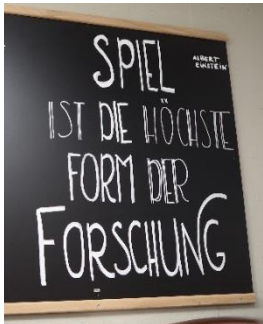 SPIEL
ALBERT
EINSTEIN
IST DIE HÖCHSTE
FORM DER
FORSCHUNG